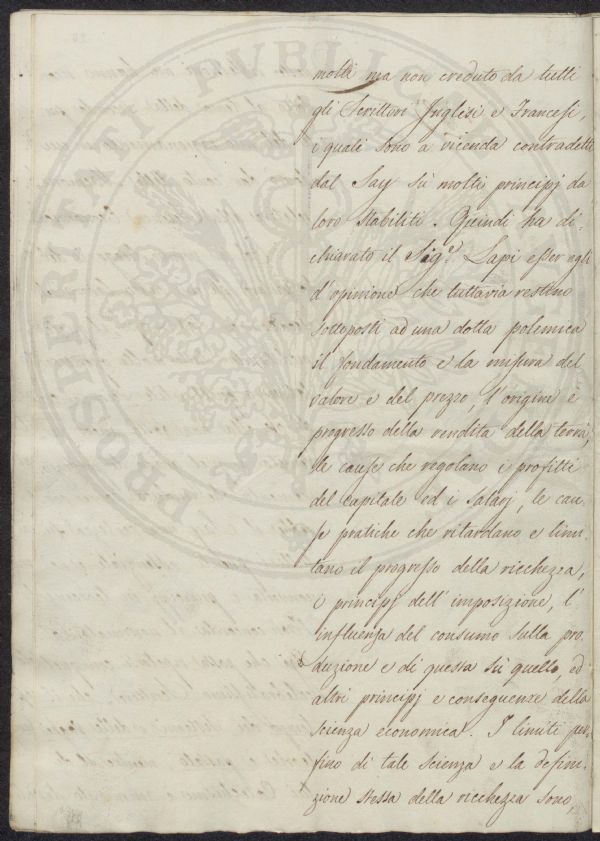 molti ma non creduto da tutti
gli Scrittori Inglesi e Francesi,
i quali sono a vicenda contradetti
dal Say sù molti principj da
loro stabiliti. Quindi ha di-
chiarato il Sig.e Lapi esser egli
d'opinione che tuttavia restino
sottoposti ad una dotta polemica
il fondamento e la misura del
valore e del prezzo, l'origine e
progresso della vendita della terra,
le cause che regolano i profitti
del capitale ed i salarj, le cau-
se pratiche che ritardano e limi-
tano il progresso della ricchezza,
i principj dell'imposizione, l'
influenza del consumo sulla pro-
duzione e di questa sù quello, ed
altri principj e conseguenze della
scienza economica. I limiti per-
fino di tale scienza e la defini-
zione stessa della ricchezza sono,
PROSPERITATI PVBLICAE